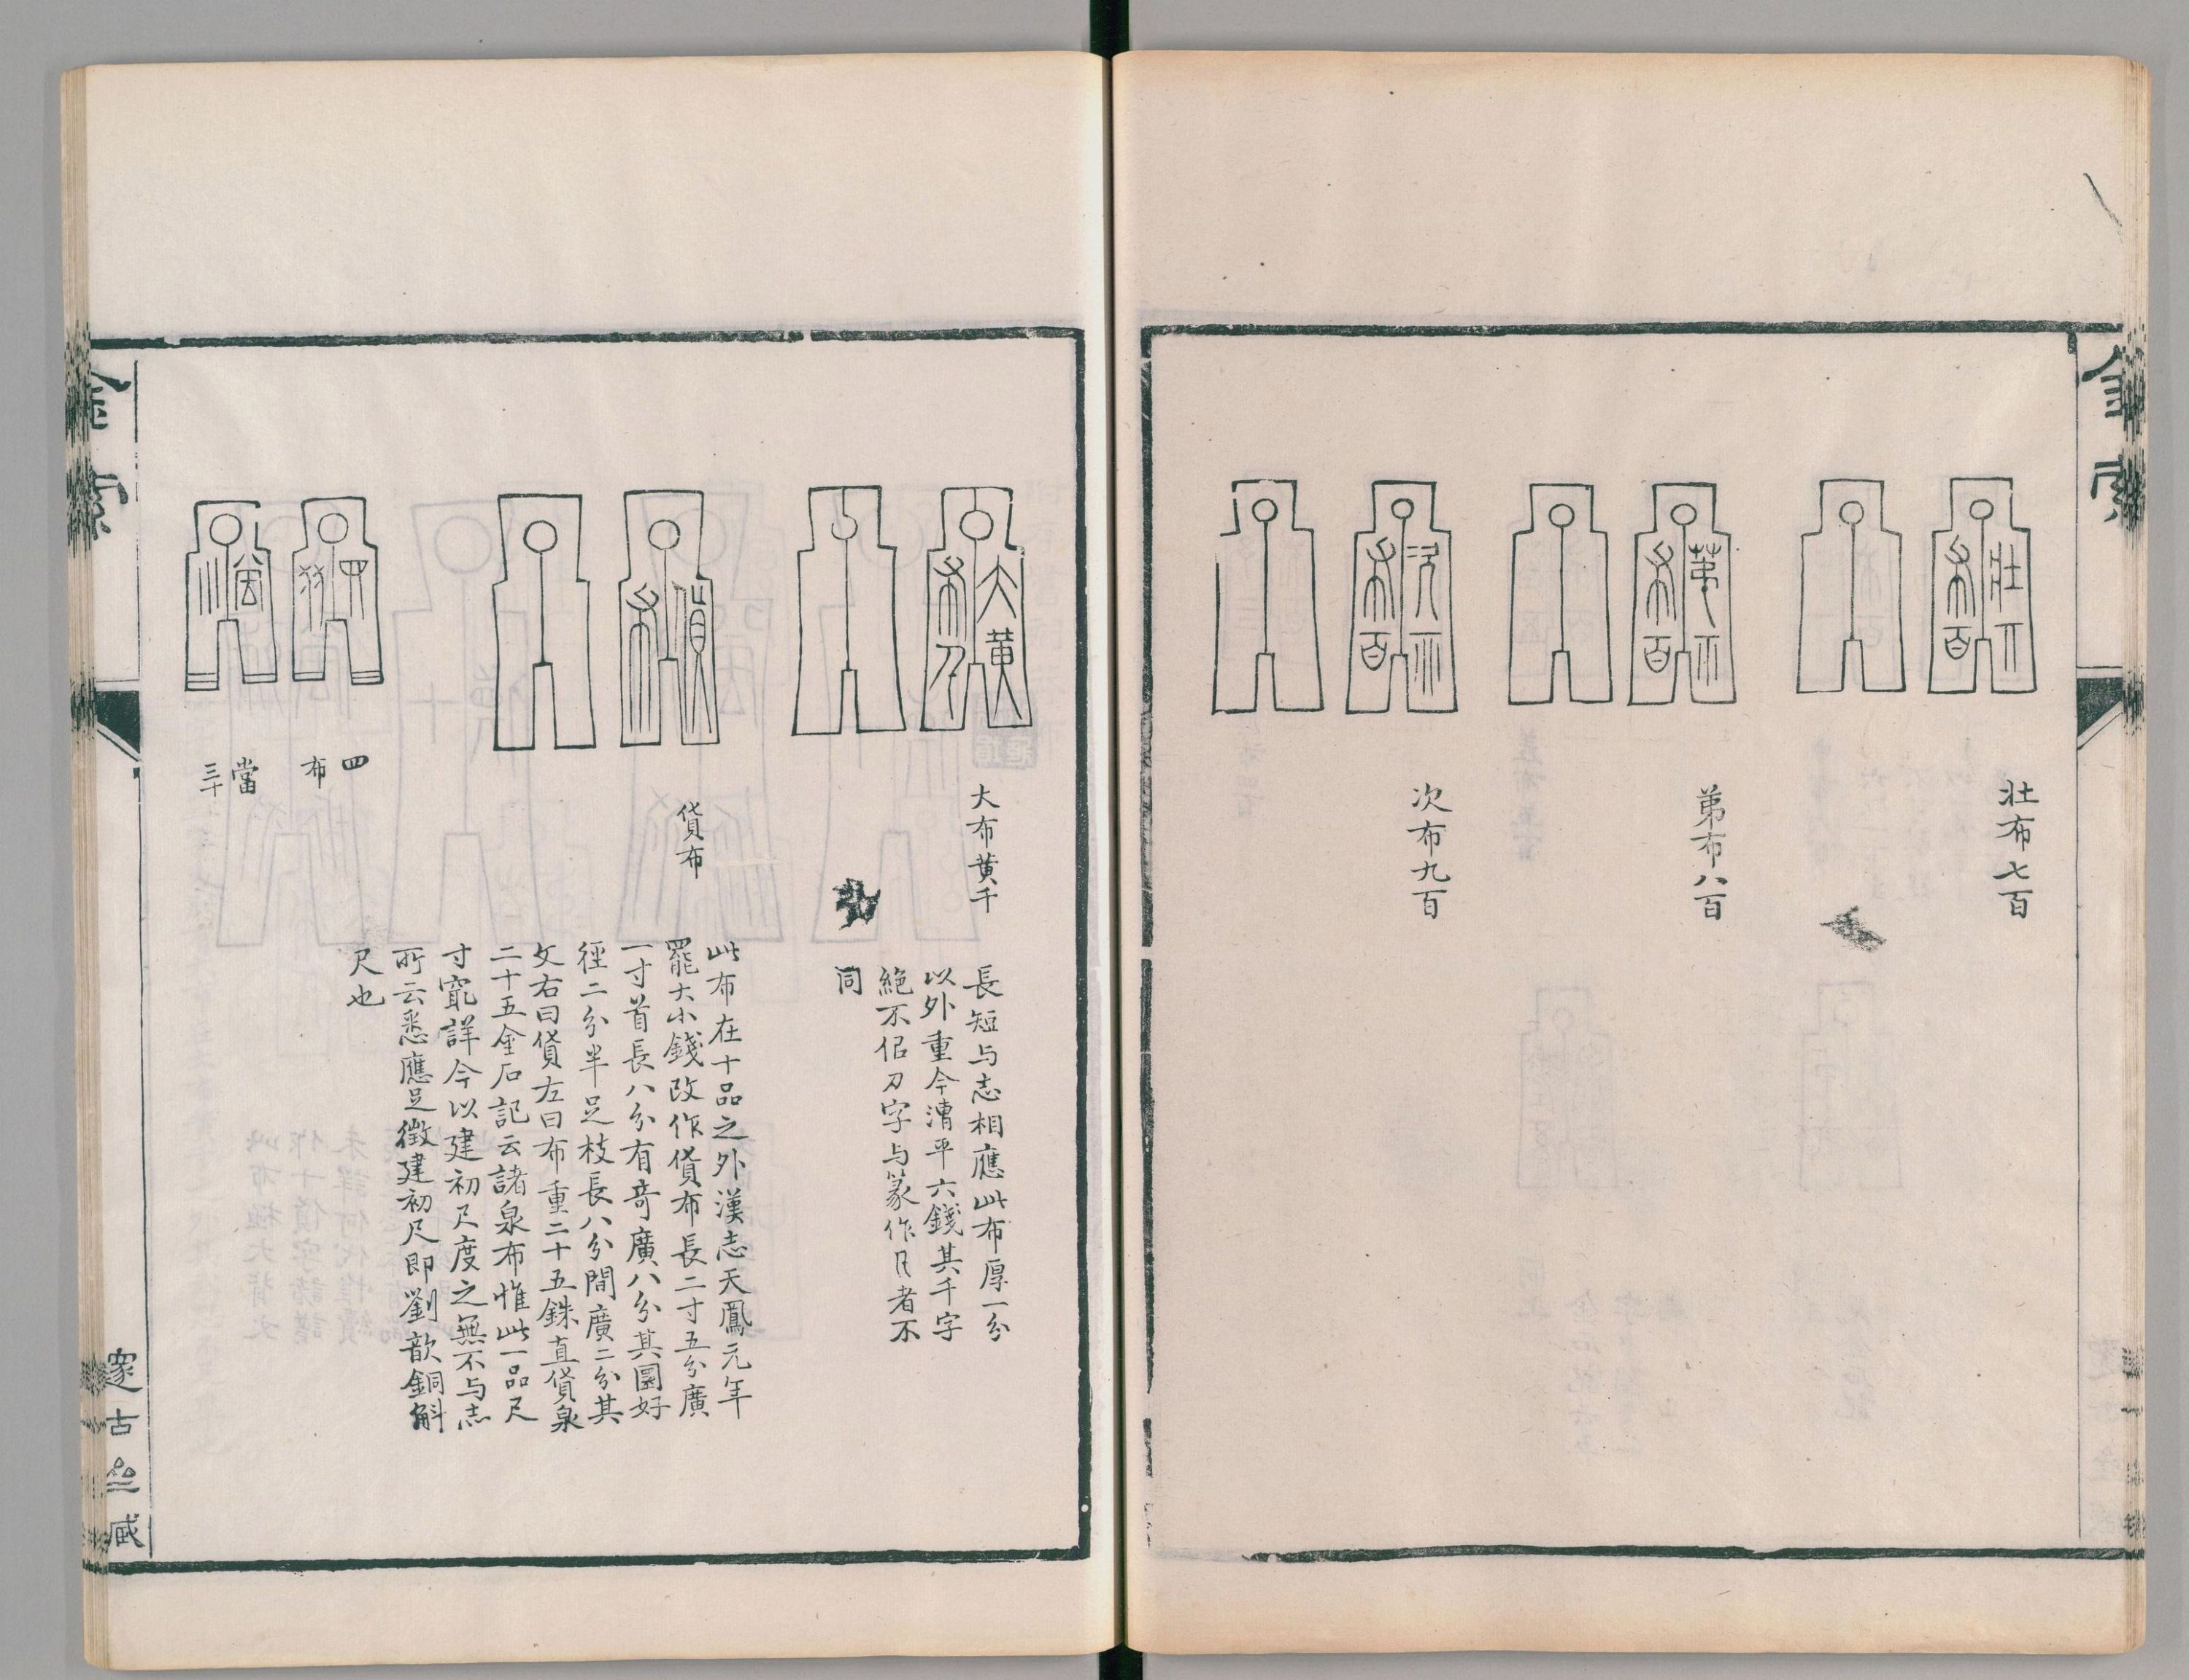 金索
壯布七百
弟布八百
次布九百
大布黄千
長短与志相應此布厚一分
以外重今漕平六錢其千字
絶不佀刀字与篆作
者不
同
貨布
此布在十品之外漢志天鳳元年
罷大小錢改作貨布長二寸五分廣
一寸首長八分有奇廣八分其圜好
徑二分半足枝長八分間廣二分其
文右曰貨左曰布重二十五銖直貨泉
二十五金石記云諸泉布惟此一品尺
寸寛詳今以建初尺度之無不与志
所云悉應足徵建初尺即劉歆銅斛
尺也
四
布
當
三十
金索
邃古
藏